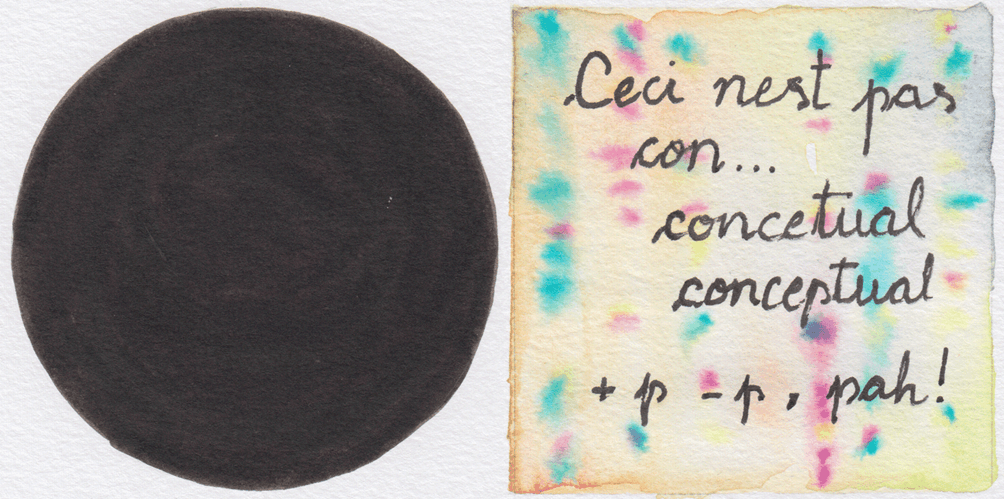 Ceci nest pas
con...
concetual
conceptual
+ p - p , pah!